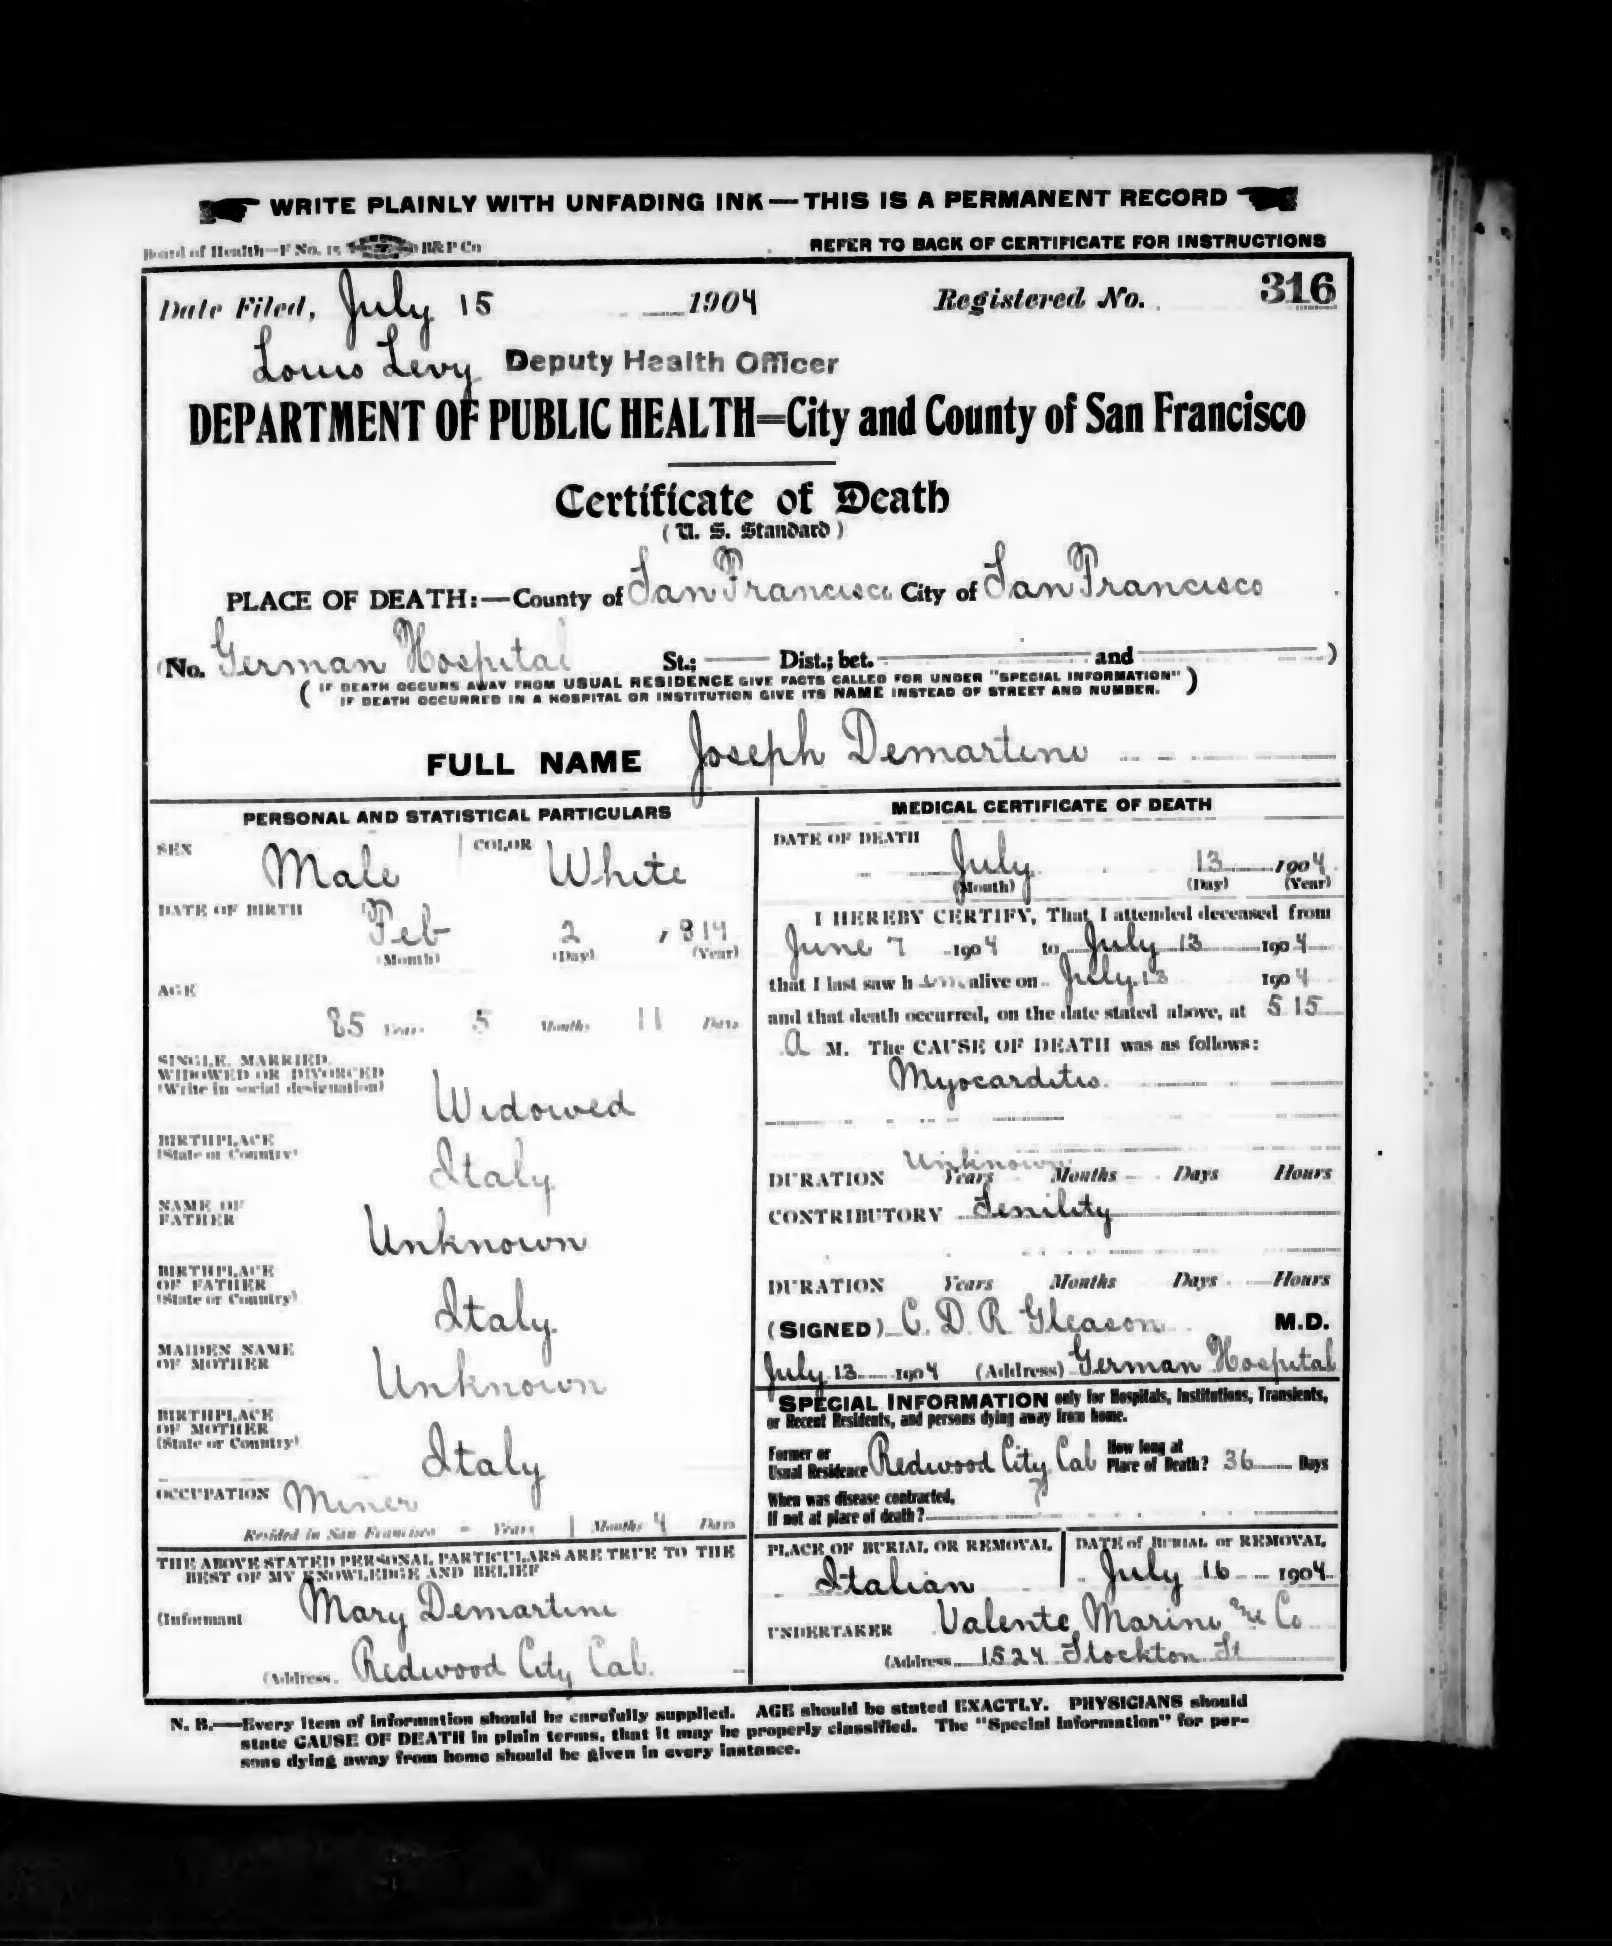 WRITE PLAINLY WITH UNFADING INK—THIS IS A PERMANENT RECORD
Board of Health—F No. 15 B&P Co
REFER TO BACK OF CERTIFICATE FOR INSTRUCTIONS
Date Filed, July 15 1904 Registered No. 316
Louis Levy Deputy Health Officer
DEPARTMENT OF PUBLIC HEALTH=City and County of San Francisco
Certificate of Death
(U. S. Standard)
PLACE OF DEATH:—County of San Francisco City of San Francisco
(No. German Hospital St.; Dist.; bet. and )
( IF DEATH OCCURS AWAY FROM USUAL RESIDENCE GIVE FACTS CALLED FOR UNDER "SPECIAL INFORMATION" )
( IF DEATH OCCURRED IN A HOSPITAL OR INSTITUTION GIVE ITS NAME INSTEAD OF STREET AND NUMBER.
FULL NAME Joseph Demartini
PERSONAL AND STATISTICAL PARTICULARS
SEX Male COLOR White
DATE OF BIRTH Feb 2 , 819
(Month) (Day) (Year)
AGE
85 Years 5 Months 11 Days
SINGLE, MARRIED,
WIDOWED OR DIVORCED
(Write in social designation)
Widowed
BIRTHPLACE
(State or Country)
Italy
NAME OF
FATHER
Unknown
BIRTHPLACE
OF FATHER
(State or Country)
Italy
MAIDEN NAME
OF MOTHER
Unknown
BIRTHPLACE
OF MOTHER
(State or Country)
Italy
OCCUPATION Miner
Resided in San Francisco - Years 1 Months 4 Days
THE ABOVE STATED PERSONAL PARTICULARS ARE TRUE TO THE
BEST OF MY KNOWLEDGE AND BELIEF
(Informant Mary Demartini
(Address. Redwood City Cal.
MEDICAL CERTIFICATE OF DEATH
DATE OF DEATH
July 13 1904
(Month) (Day) (Year)
I HEREBY CERTIFY, That I attended deceased from
June 7 1904 to July 13 1904
that I last saw h im alive on July 13 1904
and that death occurred, on the date stated above, at 5 15
A M. The CAUSE OF DEATH was as follows:
Myocarditis.
Unknown
DURATION Years Months Days Hours
CONTRIBUTORY Senility
DURATION Years Months Days Hours
(SIGNED) C. D. R. Gleason M.D.
July 13 1904 (Address) German Hospital
SPECIAL INFORMATION only for Hospitals, Institutions, Transients,
or Recent Residents, and persons dying away from home.
Former or
Usual Residence Redwood City Cal How long at
Place of Death? 36 Days
When was disease contracted,
If not at place of death? ?
PLACE OF BURIAL OR REMOVAL
Italian
DATE of BURIAL or REMOVAL
July 16 1904
UNDERTAKER Valente Marini and Co
(Address 1524 Stockton St
N. B.—Every item of information should be carefully supplied. AGE should be stated EXACTLY. PHYSICIANS should
state CAUSE OF DEATH in plain terms, that it may be properly classified. The "Special Information" for per-
sons dying away from home should be given in every instance.